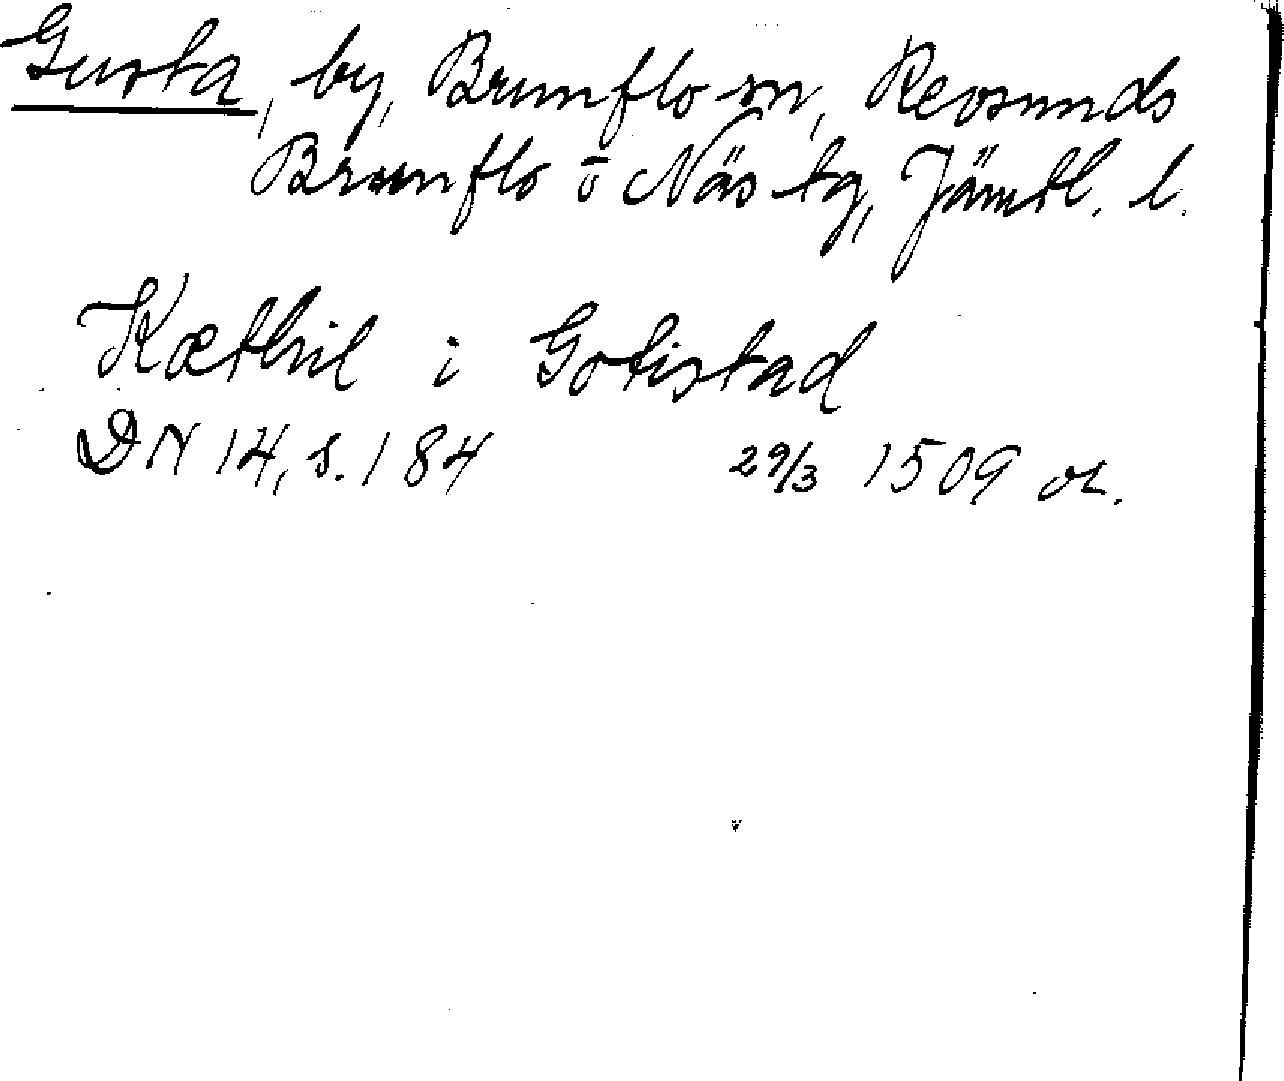 Gusta, by, Brunflo sn, Revsunds
Brunflo o Näs tg, Jämtl. l.
Kæthil i Gotistad
DN 14, s. 184 29/3 1509 or.